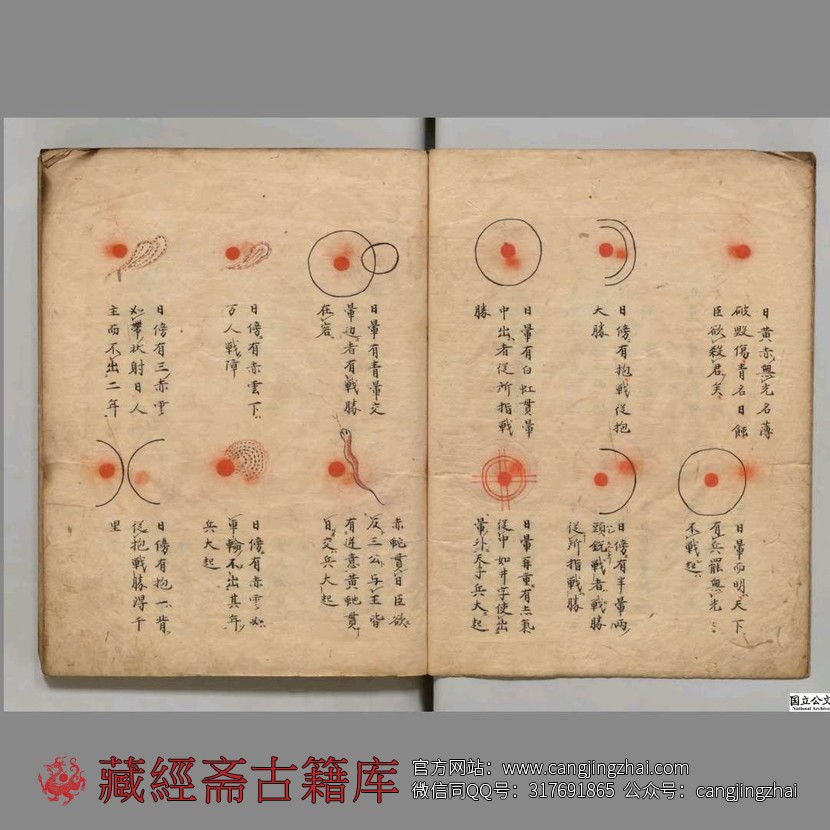 日黄赤無光名薄
破毀傷青名日餘
臣欲殺君矣
日傍有抱戦従抱
大勝
日暈有白虹貫暈
中出者従所指戦
勝
日暈而明天下
有兵罷無光
不戦起
日傍有半暈両
頭鋭戦者戦勝
従所指戦勝
日暈再重有赤氣
従中如井字使出
暈外天子兵大起
日暈有青暈交
暈边者有戦勝
在客
日傍有赤雲下
百人戦障
日傍有三赤雲
如帶状射日人
主而不出二年
赤蛇貫日臣欲
反三公与王皆
有逆意黄蛇貫
日交兵大起
日傍有赤雲如
車輪不出其年
兵大起
日傍有抱一背
従抱戦勝得千
里
国立公文
National Archives
藏經斋古籍库
官方网站：www.cangjingzhai.com
微信同QQ号：317691865 公众号：cangjingzhai